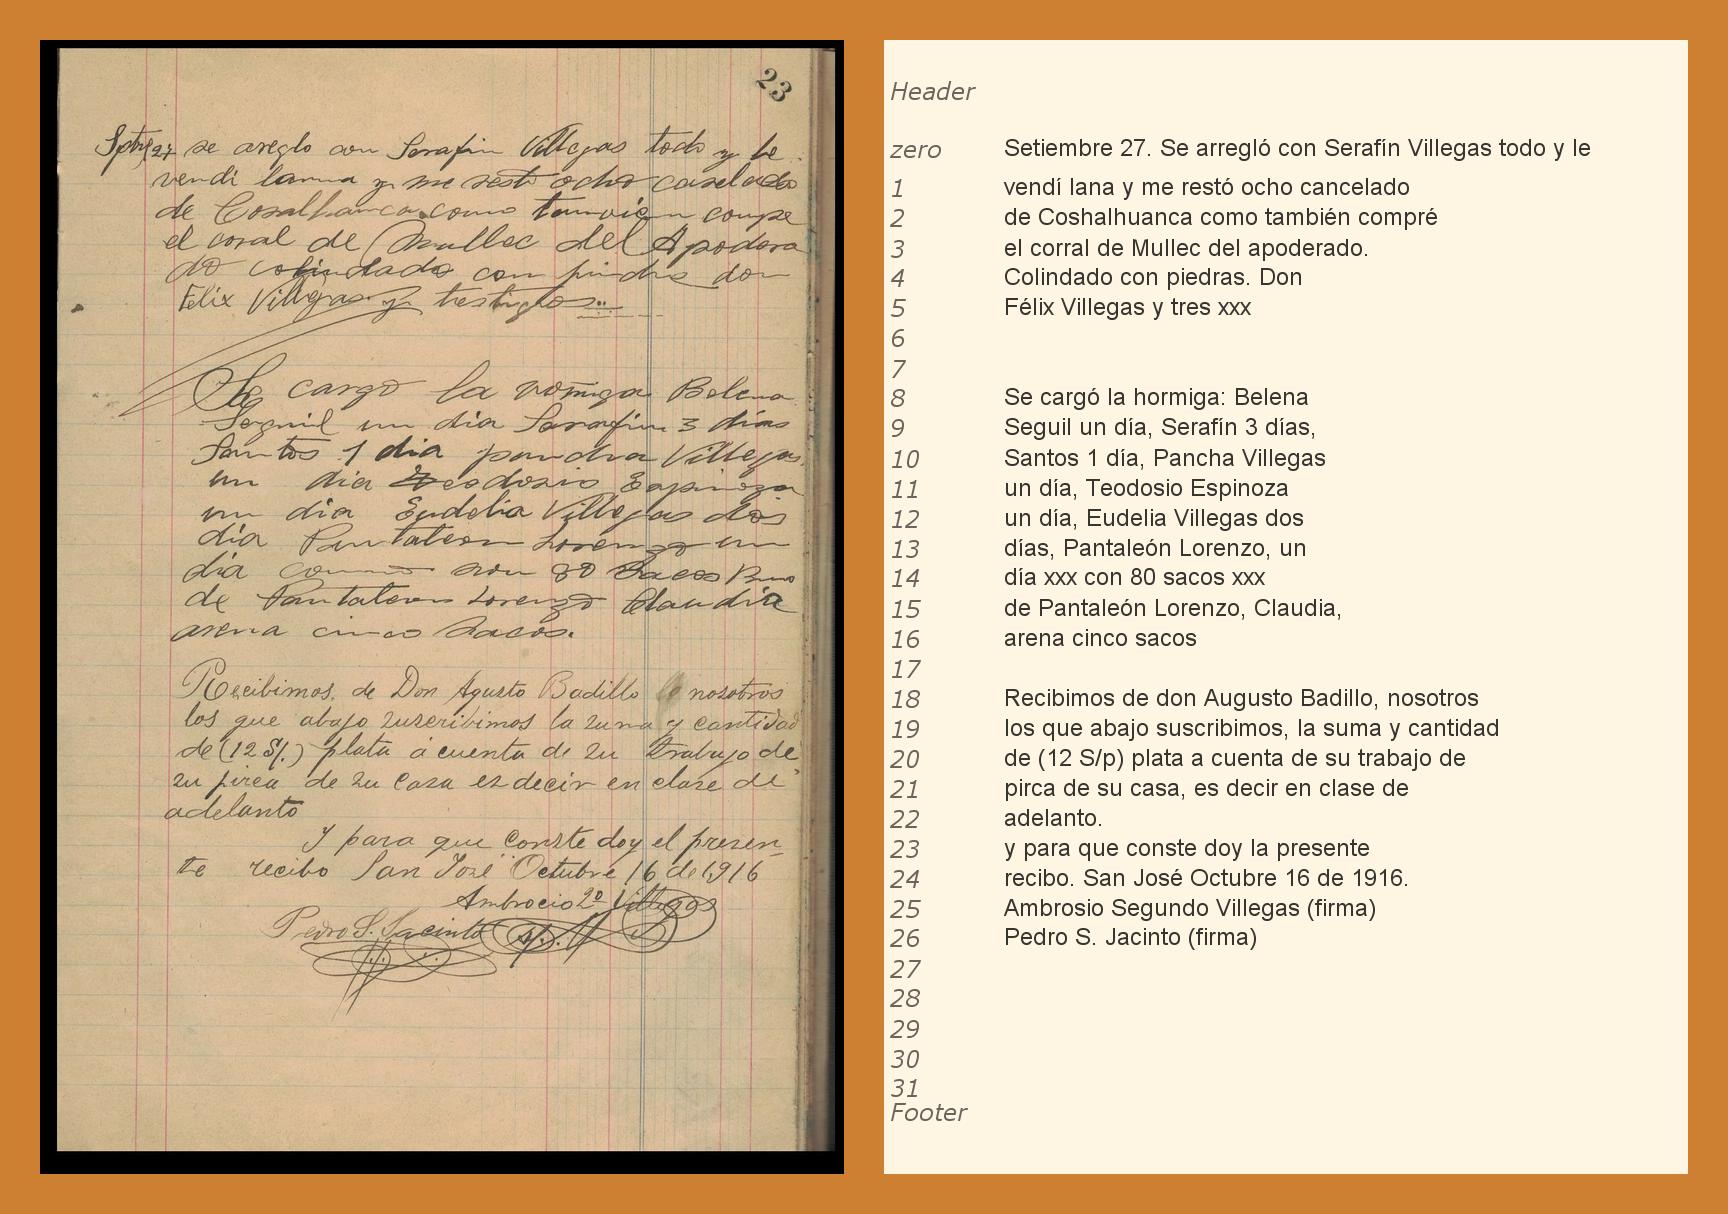 23
Sptbre 27 se areglo con Serafin Villegas todo y le
vendi lanna y me resto ocho caselado
de Cosalhuanca como tamvien compe
el coral de Mullec del Apodera
do colindado con pindra don
Felix Villegas y testiglos
Se cargo la romiga Belena
Seguil un dia Serafin 3 dias
Santos 1 dia pancha Villegas
un dia Teodosio Espinoza
un dia Eudelia Villegas dos
dia Pantaleon Lorenzo un
dia con 80 Sacos
de Pantaleon Lorenzo Claudia
arena cinco Sacos.
Recibimos de Don Agusto Badillo nosotros
los que abajo zuzeribimos la zuma y cantidad
de (12 S/.) plata á cuenta de zu trabajo de
zu pirca de zu Caza ez decir en claze de
adelanto
Y para que conste doy el prezen-
te recibo San José Octubre 16 de 1916
Ambrocio 2º Villegas
Pedro S. Jacinto
Header
zero Setiembre 27. Se arregló con Serafín Villegas todo y le
1 vendí lana y me restó ocho cancelado
2 de Coshalhuanca como también compré
3 el corral de Mullec del apoderado.
4 Colindado con piedras. Don
5 Félix Villegas y tres xxx
6
7
8 Se cargó la hormiga: Belena
9 Seguil un día, Serafín 3 días,
10 Santos 1 día, Pancha Villegas
11 un día, Teodosio Espinoza
12 un día, Eudelia Villegas dos
13 días, Pantaleón Lorenzo, un
14 día xxx con 80 sacos xxx
15 de Pantaleón Lorenzo, Claudia,
16 arena cinco sacos
17
18 Recibimos de don Augusto Badillo, nosotros
19 los que abajo suscribimos, la suma y cantidad
20 de (12 S/p) plata a cuenta de su trabajo de
21 pirca de su casa, es decir en clase de
22 adelanto.
23 y para que conste doy la presente
24 recibo. San José Octubre 16 de 1916.
25 Ambrosio Segundo Villegas (firma)
26 Pedro S. Jacinto (firma)
27
28
29
30
31
Footer